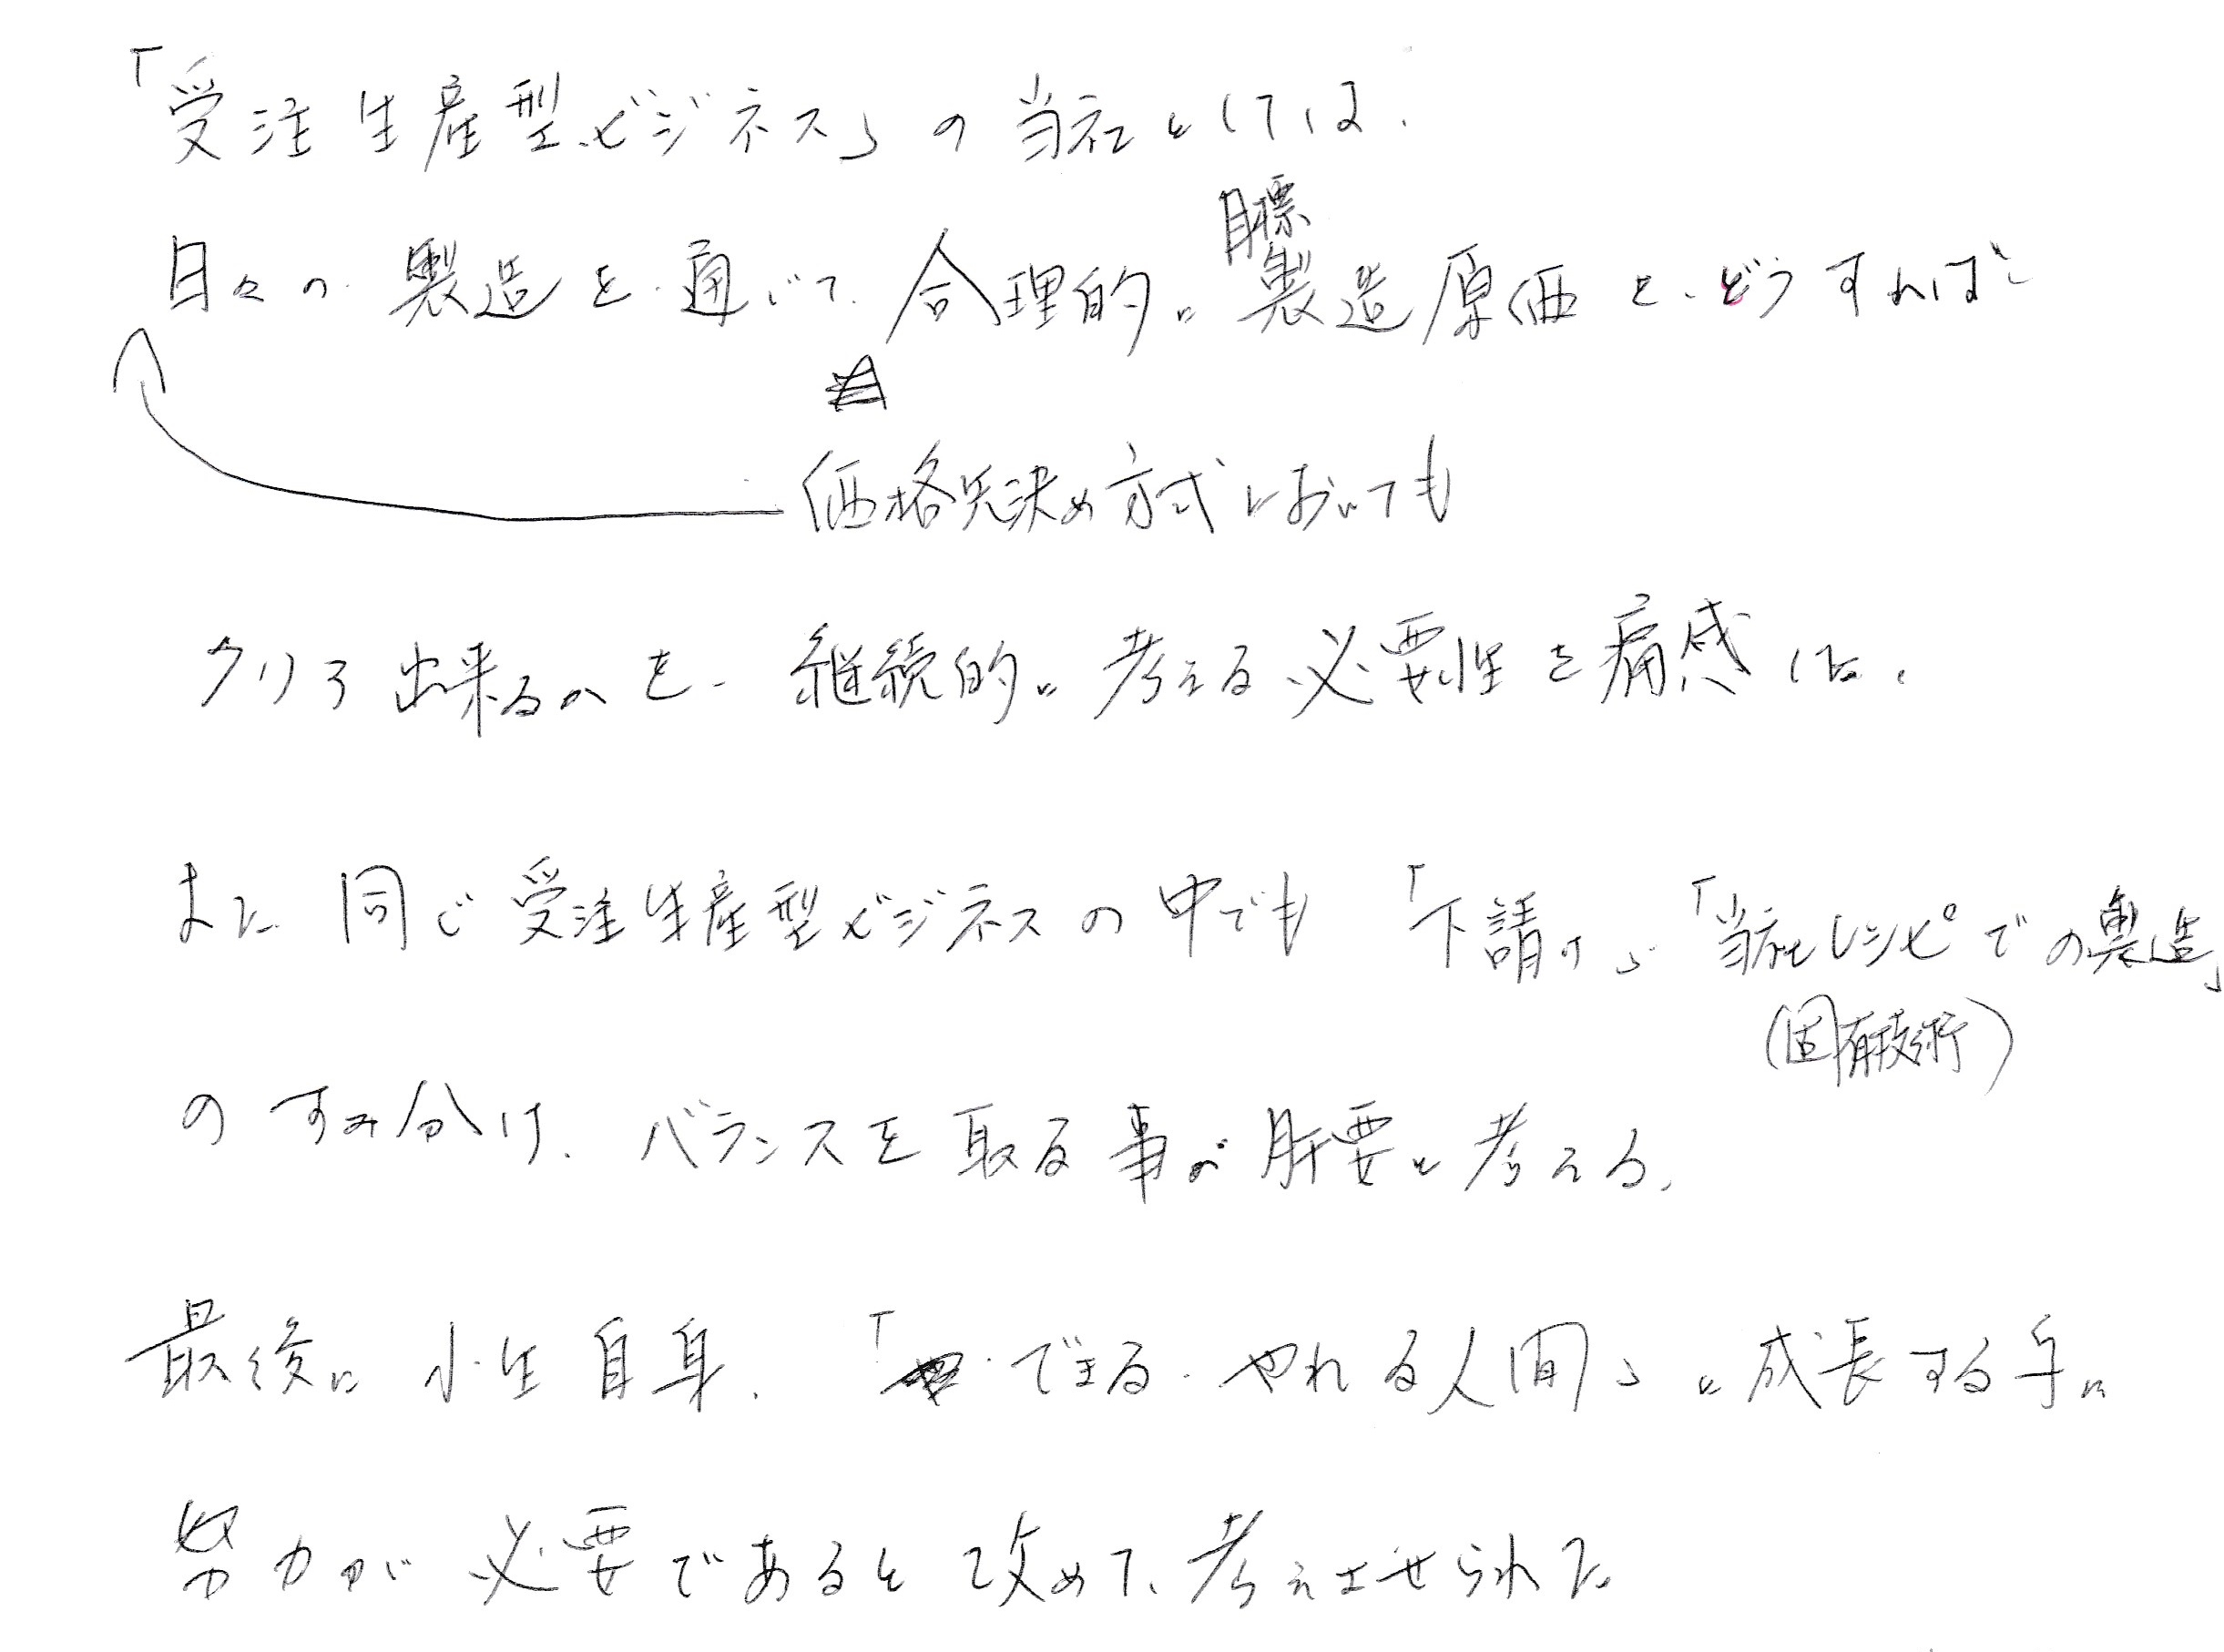 「受注生産型ビジネス」の当社としては、
目標
日々の製造を通じて、合理的に製造原価を、どうすれば
価格先決め方式においても
クリア出来るかを、継続的に考える必要性を痛感した。
また同じ受注生産型ビジネスの中でも「下請け」「当社レシピでの製造」
(固有技術)
のすみ分け、バランスを取る事が肝要と考える。
最後に小生自身、「できる・やれる人間」に成長する為に
努力が必要であると改めて、考えさせられた